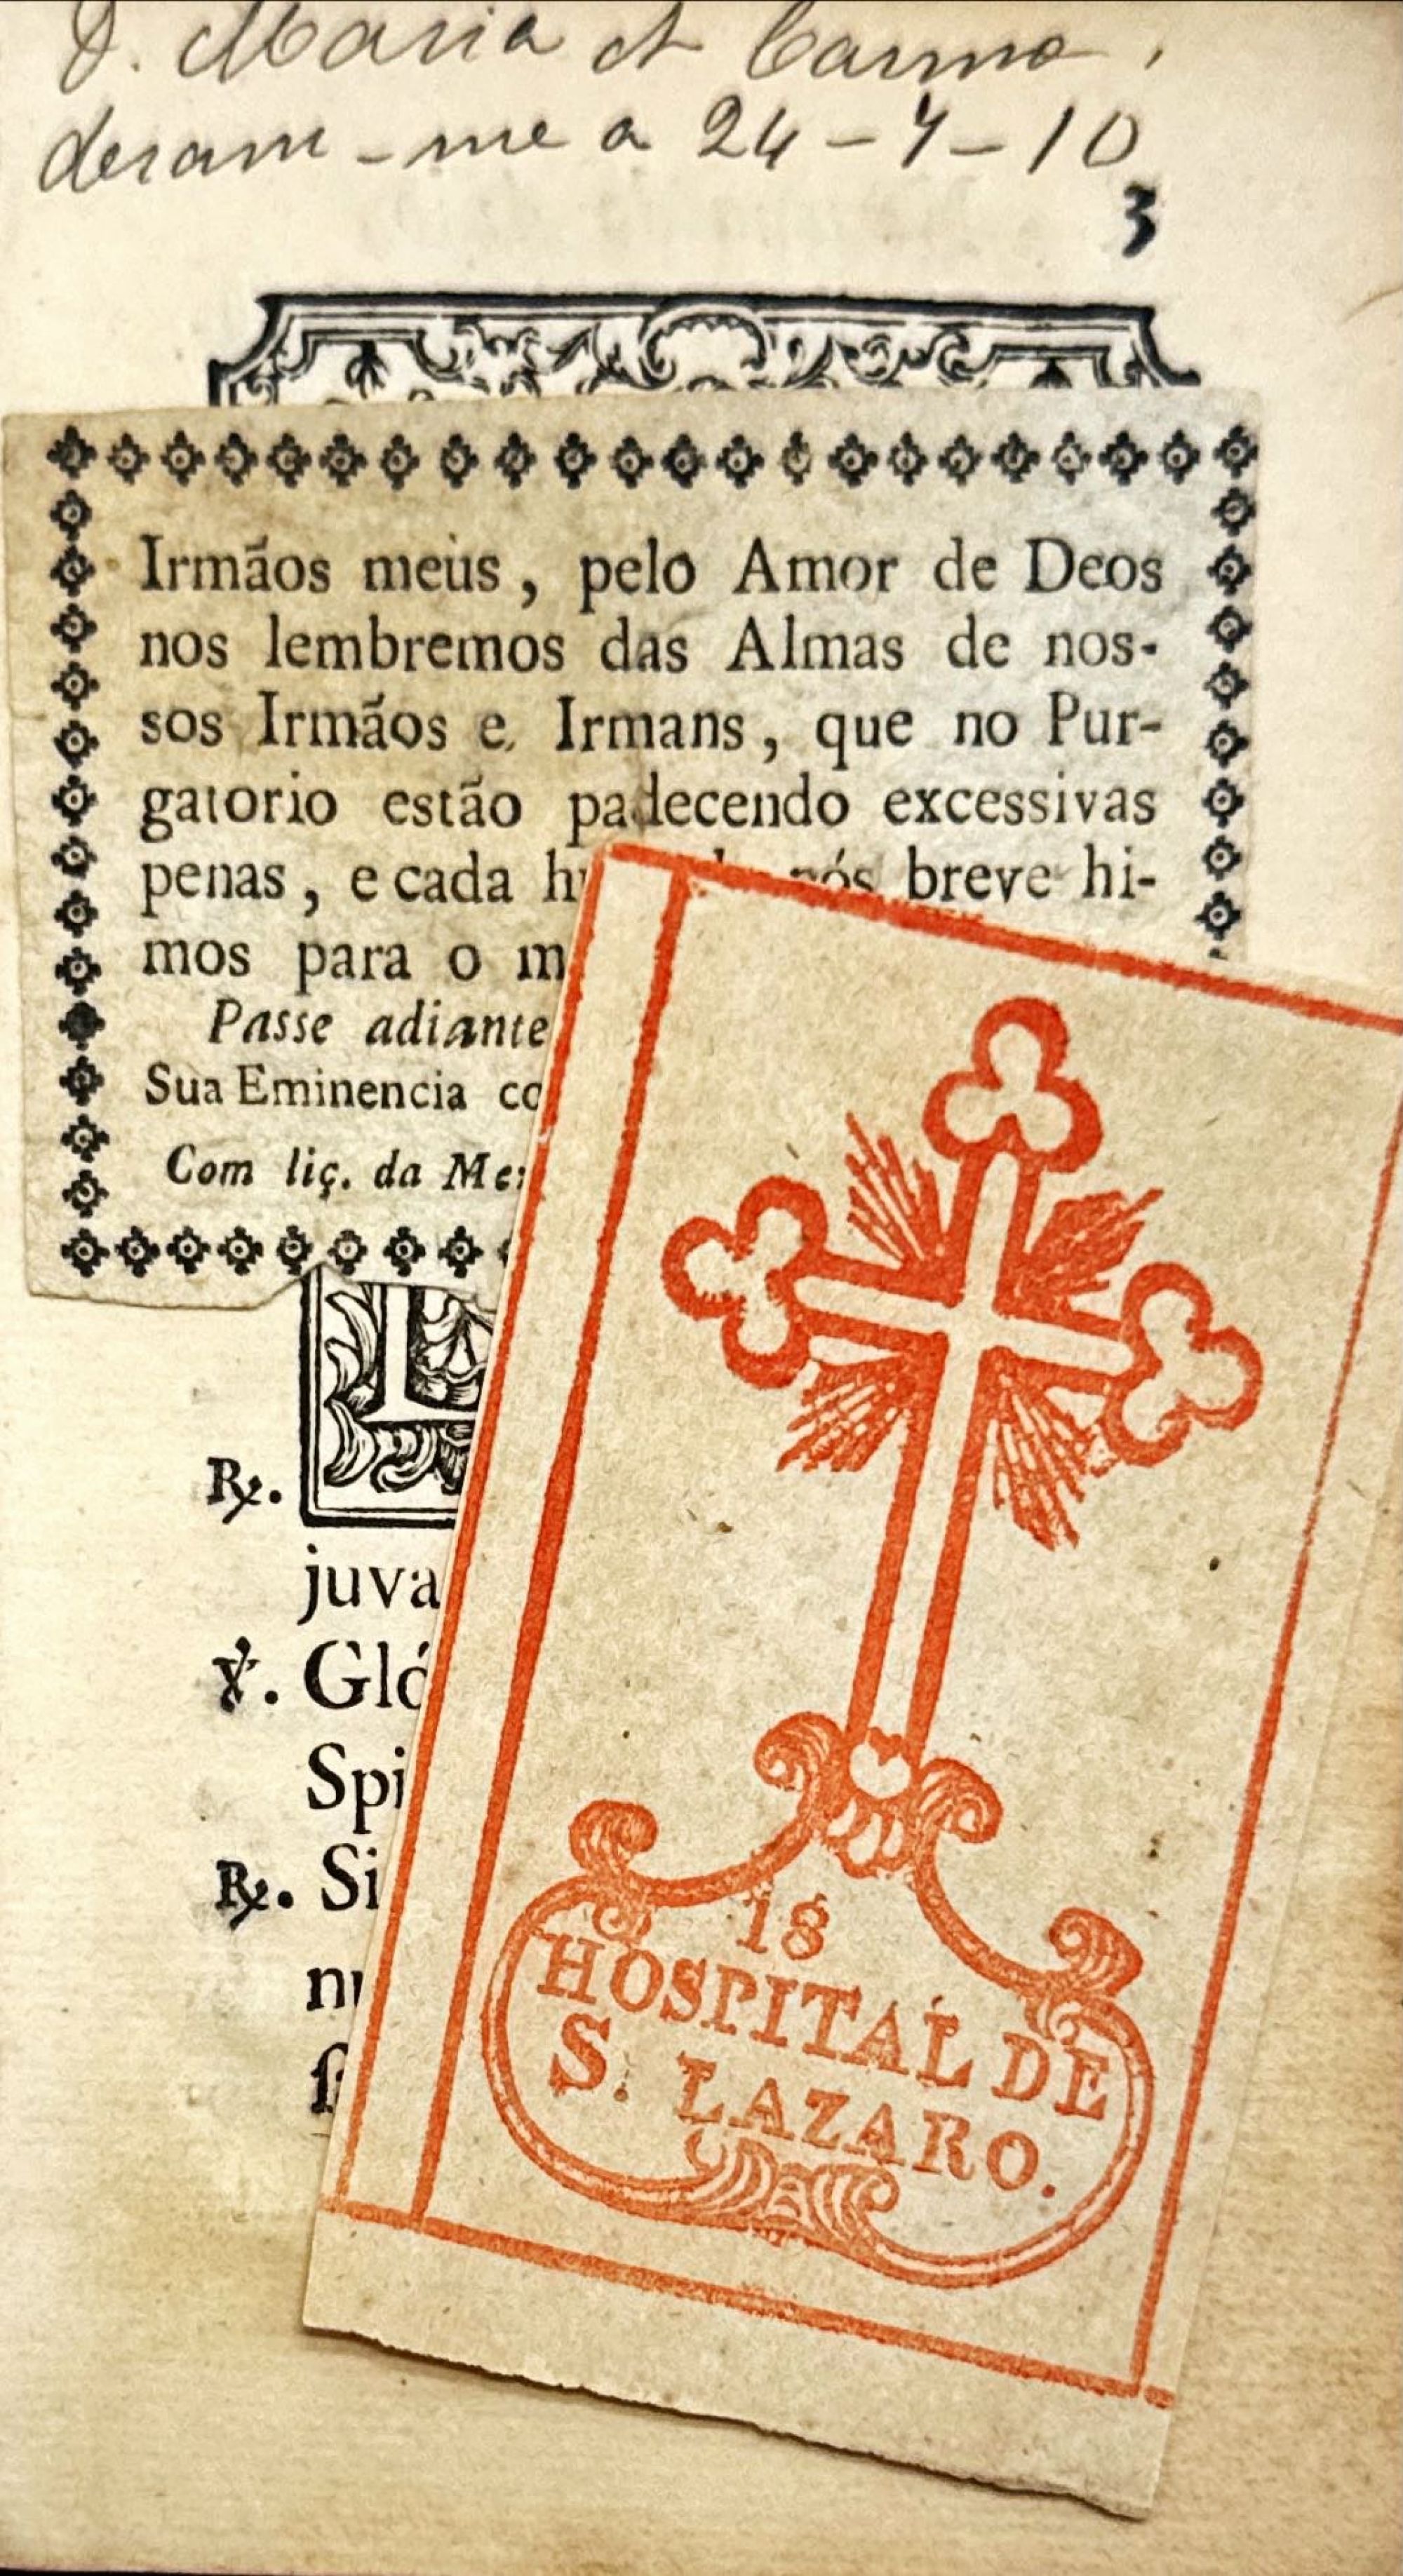 D. Maria et Carmo,
deram-me a 24-4-10
3
Irmãos meus, pelo Amor de Deos
nos lembremos das Almas de nos-
sos Irmãos e Irmans, que no Pur-
gatorio estão padecendo excessivas
penas, e cada nós breve hi-
mos para o m
Passe adiante
Sua Eminencia co
Com liç. da Me
℟.
juva
℣. Gló
Spi
℟. Si
18
HOSPITAL DE
S. LAZARO.